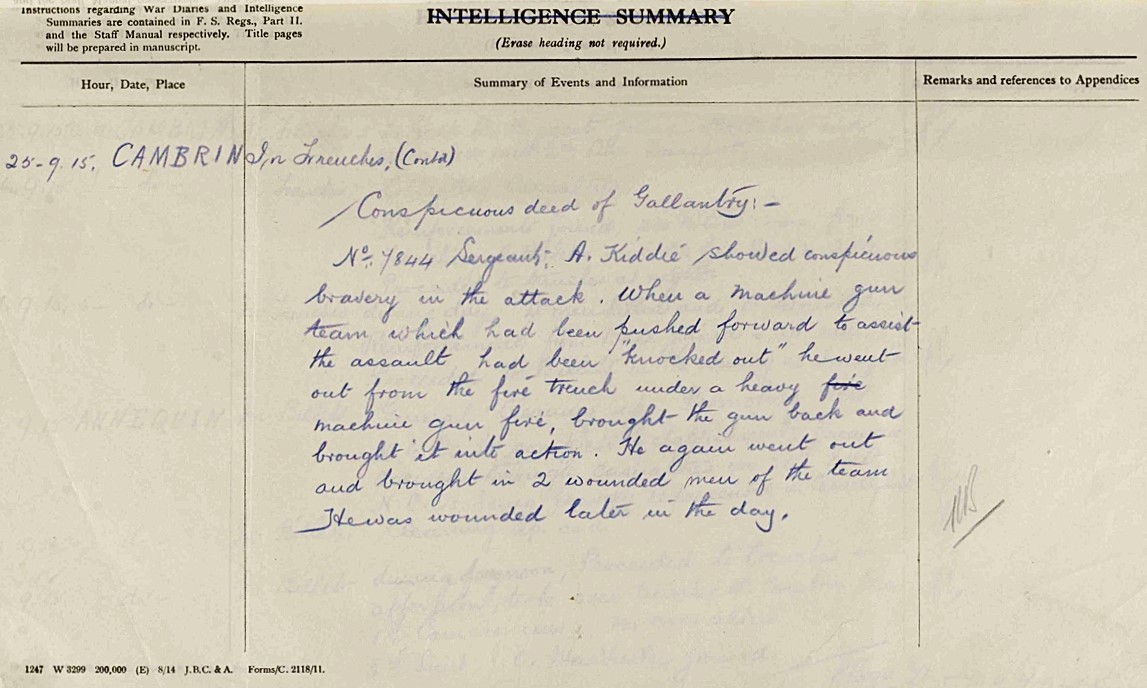 Instructions regarding War Diaries and Intelligence
Summaries are contained in F. S. Regs., Part II.
and the Staff Manual respectively. Title pages
will be prepared in manuscript.
INTELLIGENCE SUMMARY
(Erase heading not required.)
Hour, Date, Place
Summary of Events and Information
Remarks and references to Appendices
25-9.15. CAMBRIN In Trenches, (Contd)
Conspicuous deed of Gallantry:-
No. 7844 Sergeant. A. Kiddie showed conspicuous
bravery in the attack. When a machine gun
team which had been pushed forward to assist
the assault had been "knocked out" he went
out from the fire trench under a heavy fire
machine gun fire, brought the gun back and
brought it into action. He again went out
and brought in 2 wounded men of the team
He was wounded later in the day.
1247 W 3299 200,000 (E) 8/14 J.B.C. & A. Forms/C. 2118/11.